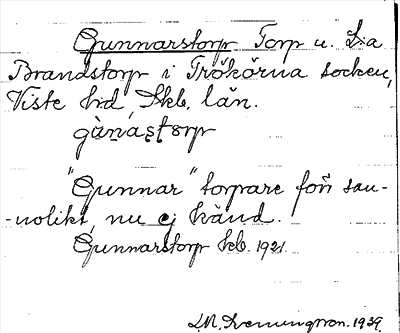 Gunnarstorp Torp u. L:a
Brandstorp i Trökörna socken,
Viste hd, Skb. län.
gùṇáṣṭorp
"Gunnar" torpare förr san-
-nolikt, nu ej känd.
Gunnarstorp kb. 1921
1939